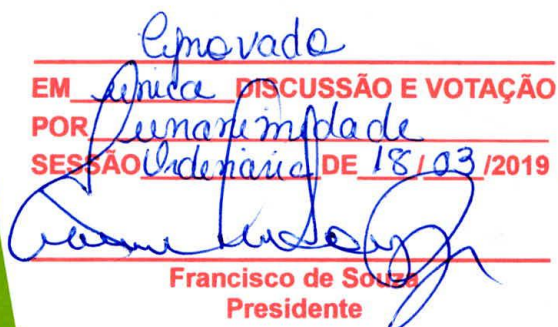 Aprovado
EM única DISCUSSÃO E VOTAÇÃO
POR unanimidade
SESSÃO Ordinária DE 18/03/2019
Francisco de Souza
Presidente